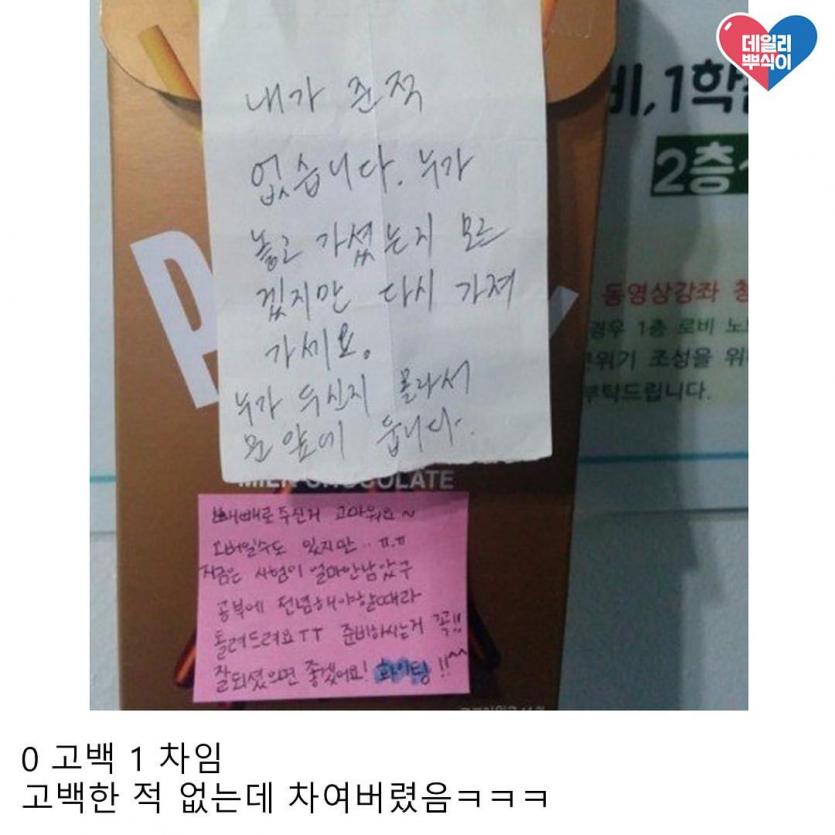 데일리
뿌식이
내가 준적
없습니다. 누가
놓고 가셨는지 모르
겠지만 다시 가져
가세요.
누가 두신지 몰라서
문 앞에 둡니다.
P
MILK CHOCOLATE
빼빼로 주신거 고마워요~
오버일수도 있지만.. ㅠ.ㅠ
지금은 시험이 얼마안남았구
공부에 전념해야할때라
돌려드려요TT 준비하시는거 꼭!!
잘되셨으면 좋겠어요! 화이팅!!^^
비,1학
2층
동영상강좌
경우 1층 로비
분위기 조성을 위
부탁드립니다.
0 고백 1 차임
고백한 적 없는데 차여버렸음ㅋㅋㅋ